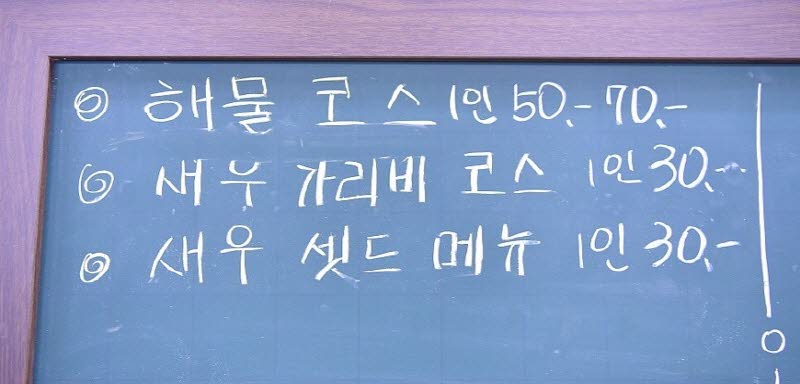 ◎ 해물 코스 1인 50.- 70.-
◎ 새우 가리비 코스 1인 30.-
◎ 새우 셋드 메뉴 1인 30.-